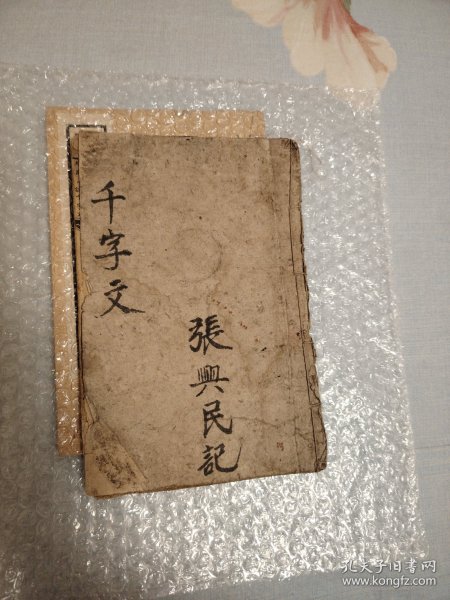 千字文
張興民記
孔夫子旧书网
www.kongfz.com